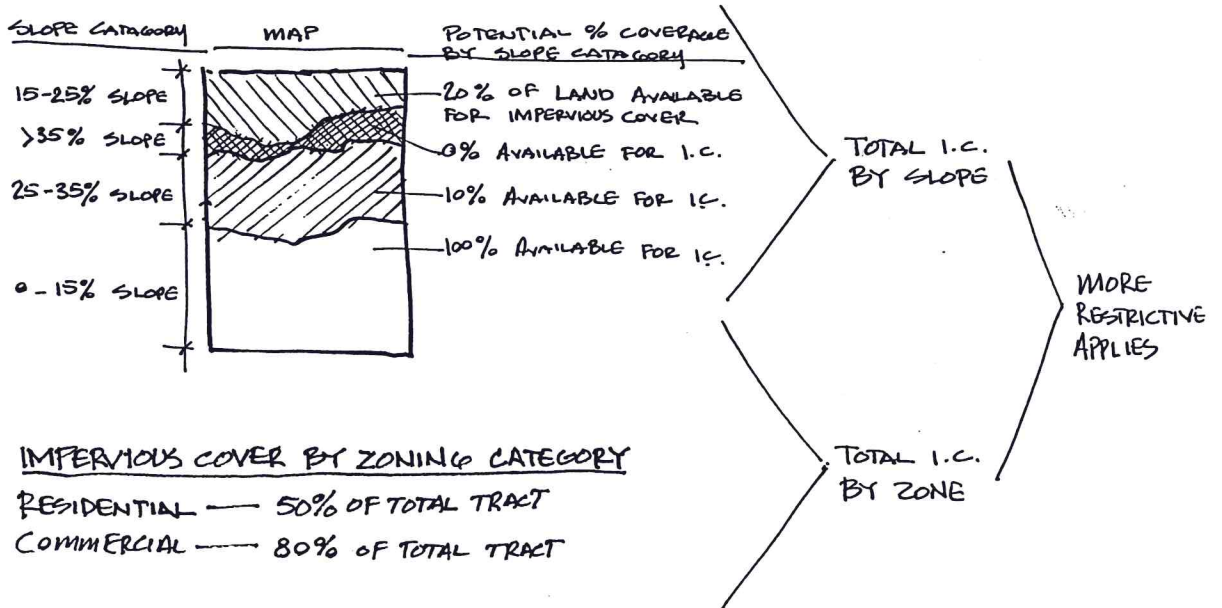 SLOPE CATAGORY
MAP
POTENTIAL % COVERAGE
BY SLOPE CATAGORY
15-25% SLOPE
>35% SLOPE
25-35% SLOPE
0-15% SLOPE
20% OF LAND AVAILABLE
FOR IMPERVIOUS COVER
0% AVAILABLE FOR I.C.
10% AVAILABLE FOR IC.
100% AVAILABLE FOR IC.
TOTAL I.C.
BY SLOPE
MORE
RESTRICTIVE
APPLIES
TOTAL I.C.
BY ZONE
IMPERVIOUS COVER BY ZONING CATEGORY
RESIDENTIAL — 50% OF TOTAL TRACT
COMMERCIAL — 80% OF TOTAL TRACT